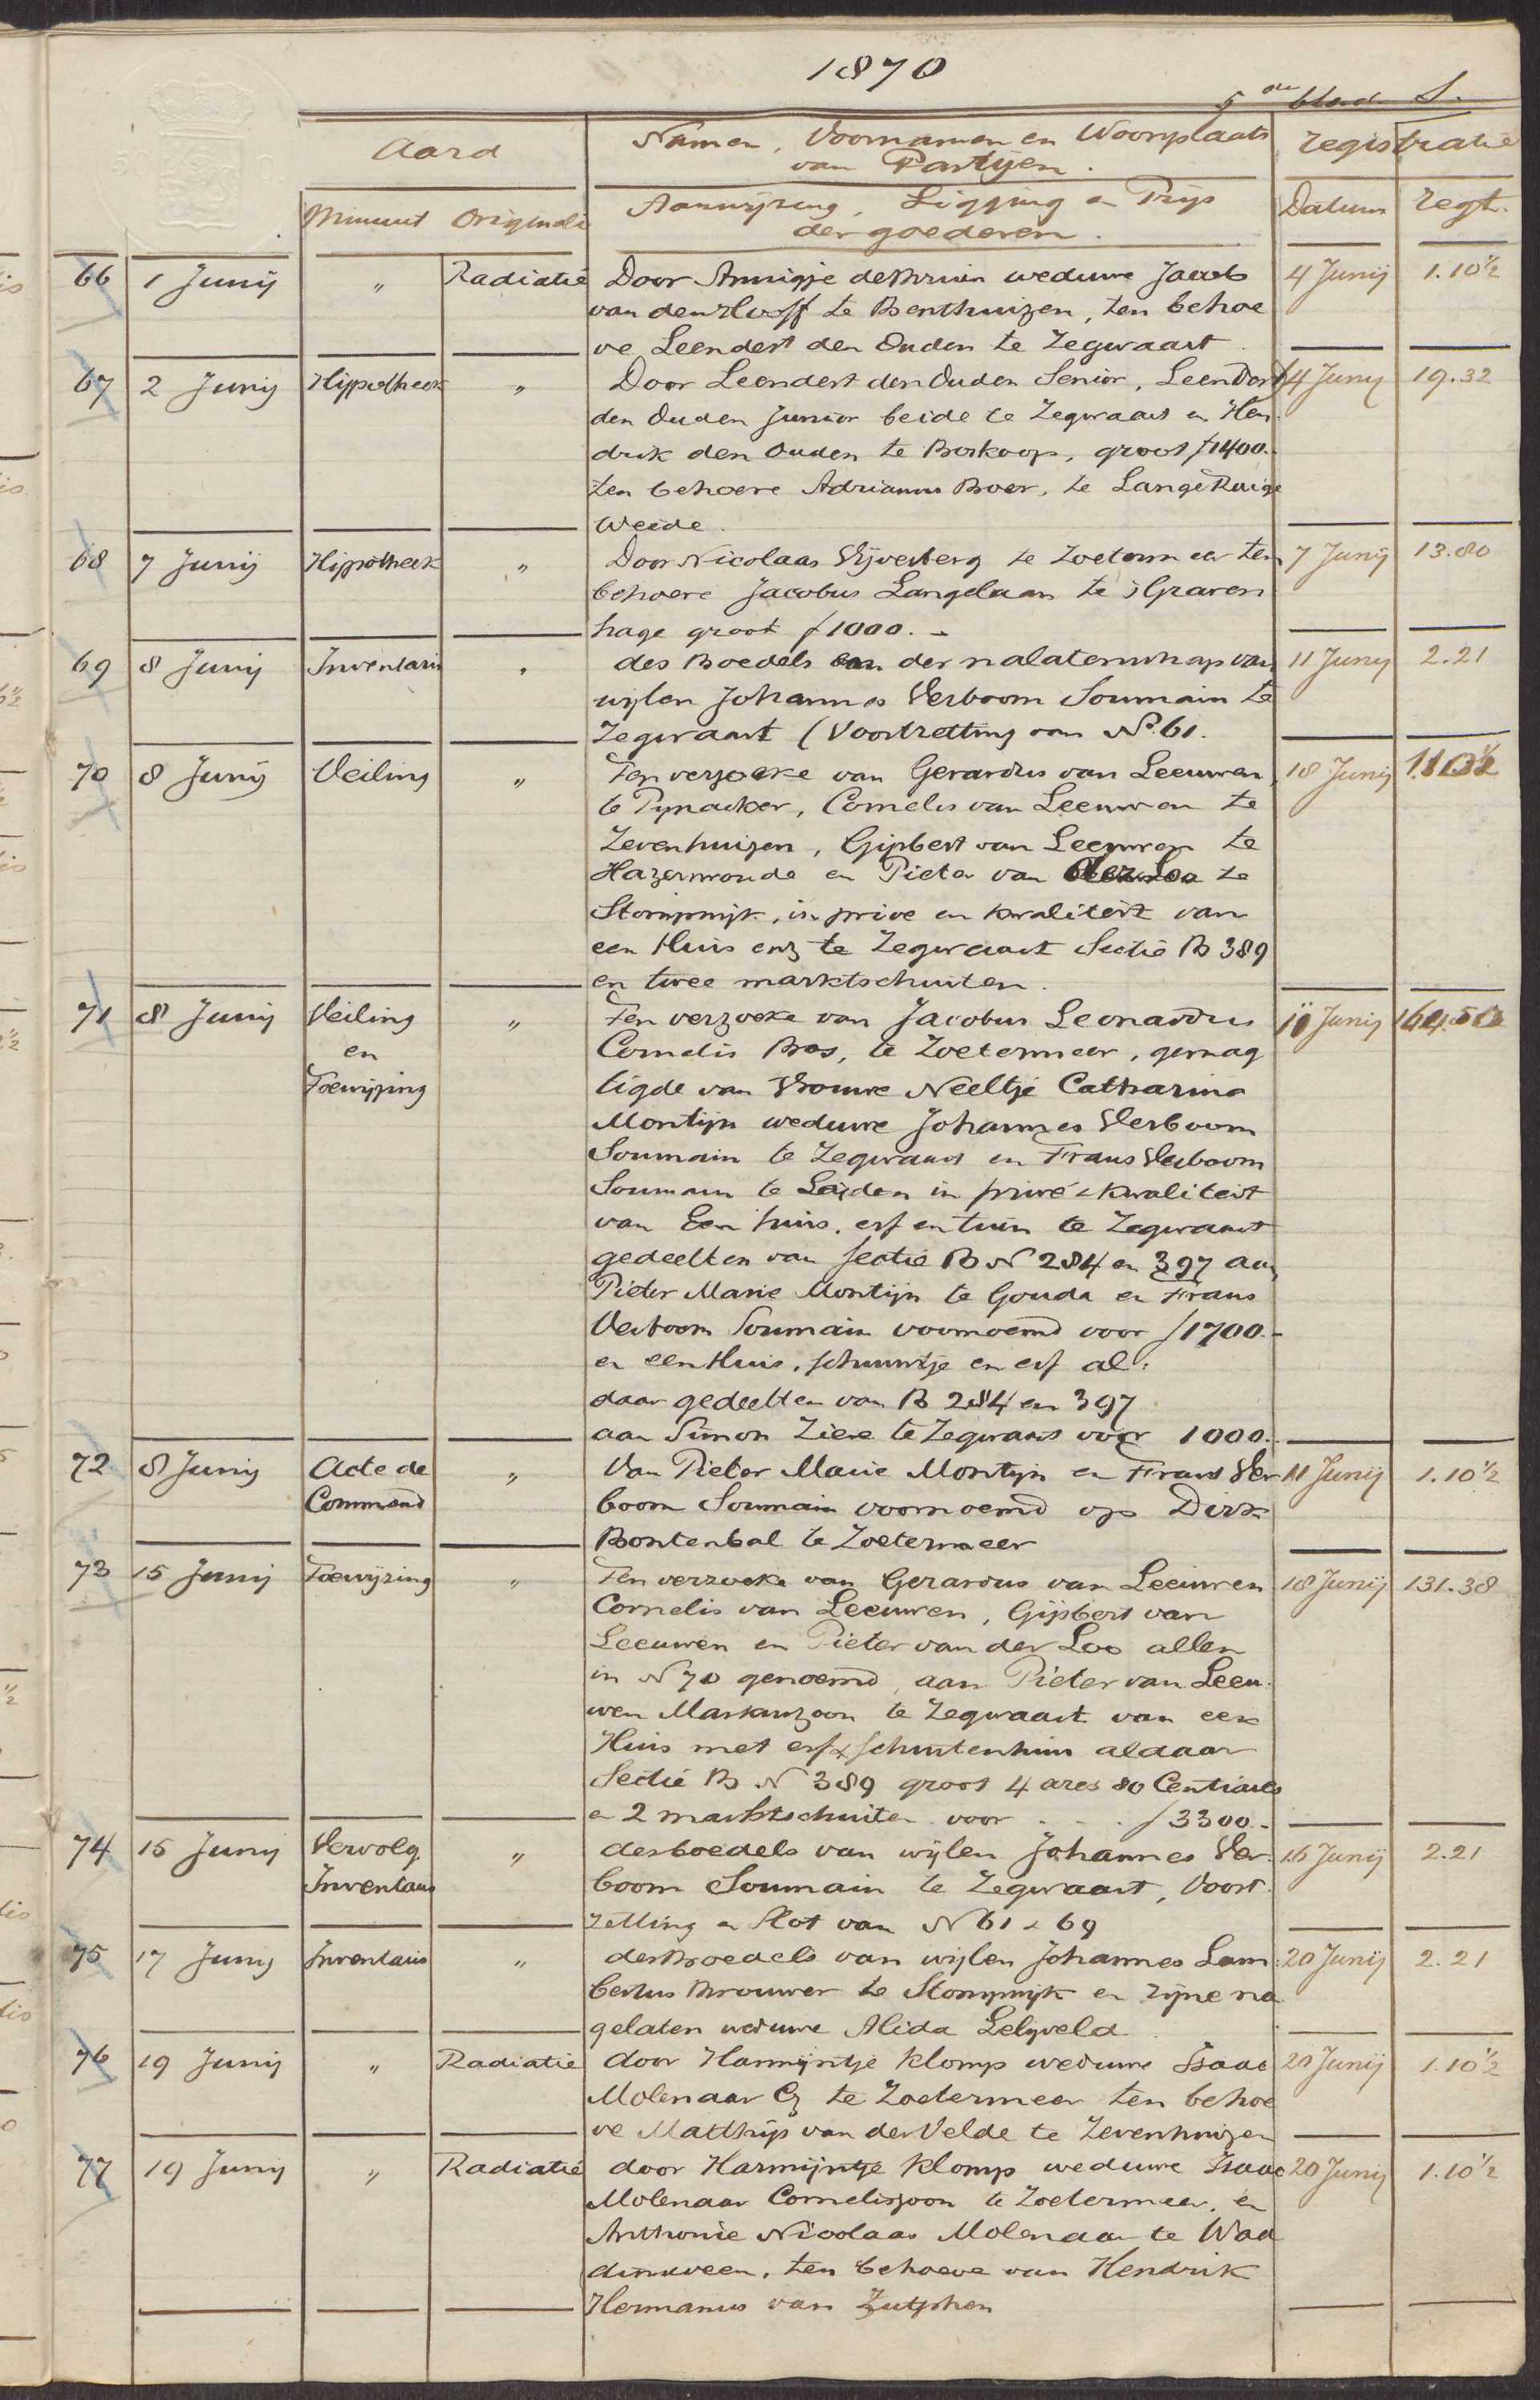 1870
5de blad S.
Aard
Namen, Voornamen en Woonplaats
van Partijen.
registratie
Minuut Originali
Aanwijzing, Ligging en Prijs
der goederen.
Datum regt.
66 1 Junij " Radiatie Door Annigje de Bruin weduwe Jacob 4 Junij 1.10½
van den Hooff te Benthuizen, ten behoe
ve Leendert den Ouden te Zegwaart
67 2 Junij Hijpotheek " Door Leendert den Ouden Senior, Leendert 4 Junij 19.32
den Ouden Junior beide te Zegwaart en Hen
drik den Ouden te Boskoop, groot f 1400.-
ten behoeve Adrianus Boer, te Lange Ruige
Weide.
68 7 Junij Hijpotheek " Door Nicolaas Vijverberg te Zoetermeer ten 7 Junij 13.80
behoeve Jacobus Langelaan te 's Graven
hage groot f 1000.-
69 8 Junij Inventaris " des Boedels van der nalatenschap van 11 Junij 2.21
wijlen Johannes Verboom Soumain te
Zegwaart (Voortzetting van No. 61.
70 8 Junij Veiling " Ten verzoeke van Gerardus van Leeuwen, 18 Junij 1.10½
te Pynacker, Cornelis van Leeuwen te
Zevenhuizen, Gijsbert van Leeuwen te
Hazerswoude en Pieter van der Loo te
Stompwijk, in prive en kwaliteit van
een Huis enz te Zegwaart Sectie B 389
en twee marktschuiten.
71 8 Junij Veiling " Ten verzoeke van Jacobus Leonardus Junij
en Cornelis Bos, te Zoetermeer, gemag
Toewijzing tigde van Vrouwe Neeltje Catharina
Montijn weduwe Johannes Verboom
Soumain te Zegwaart en Frans Verboom
Soumain te Leiden in privé & kwaliteit
van Een huis, erf en tuin te Zegwaart
gedeelten van sectie B N 284 en 397 aan
Pieter Marie Montijn te Gouda en Frans
Verboom Soumain voornoemd voor f 1700.-
en een Huis, schuurtje en erf al:
daar gedeelten van B 284 en 397
aan Simon Ziere te Zegwaart voor 1000.-
72 8 Junij Acte de " Van Pieter Marie Montijn en Frans Ver 11 Junij 1.10½
Command boom Soumain voornoemd op Dirk
Bontenbal te Zoetermeer
73 15 Junij Toewijzing " Ten verzoeke van Gerardus van Leeuwen 18 Junij 131.38
Cornelis van Leeuwen, Gijsbert van
Leeuwen en Pieter van der Loo allen
in N 70 genoemd, aan Pieter van Leeu:
wen Markuszoon te Zegwaart van een
Huis met erf & schuitenhuis aldaar
Sectie B N 389 groot 4 ares 80 Centiares
en 2 marktschuiten voor . . . f 3300.-
74 15 Junij Vervolg " des boedels van wijlen Johannes Ver: 16 Junij 2.21
Inventaris boom Soumain te Zegwaart, Voort
zetting en Slot van N 61 & 69
75 17 Junij Inventaris " des Boedels van wijlen Johannes Lam: 20 Junij 2.21
bertus Brouwer te Stompwijk en zijne na
gelaten weduwe Alida Lelyveld
76 19 Junij " Radiatie door Harmijntje Klomp weduwe Isaac 20 Junij 1.10½
Molenaar Cz te Zoetermeer ten behoe
ve Matthijs van der Velde te Zevenhuizen
77 19 Junij " Radiatie door Harmijntje Klomp weduwe Isaac 20 Junij 1.10½
Molenaar Corneliszoon te Zoetermeer, en
Anthonie Nicolaas Molenaar te Wad
dinxveen, ten behoeve van Hendrik
Hermanus van Zutphen